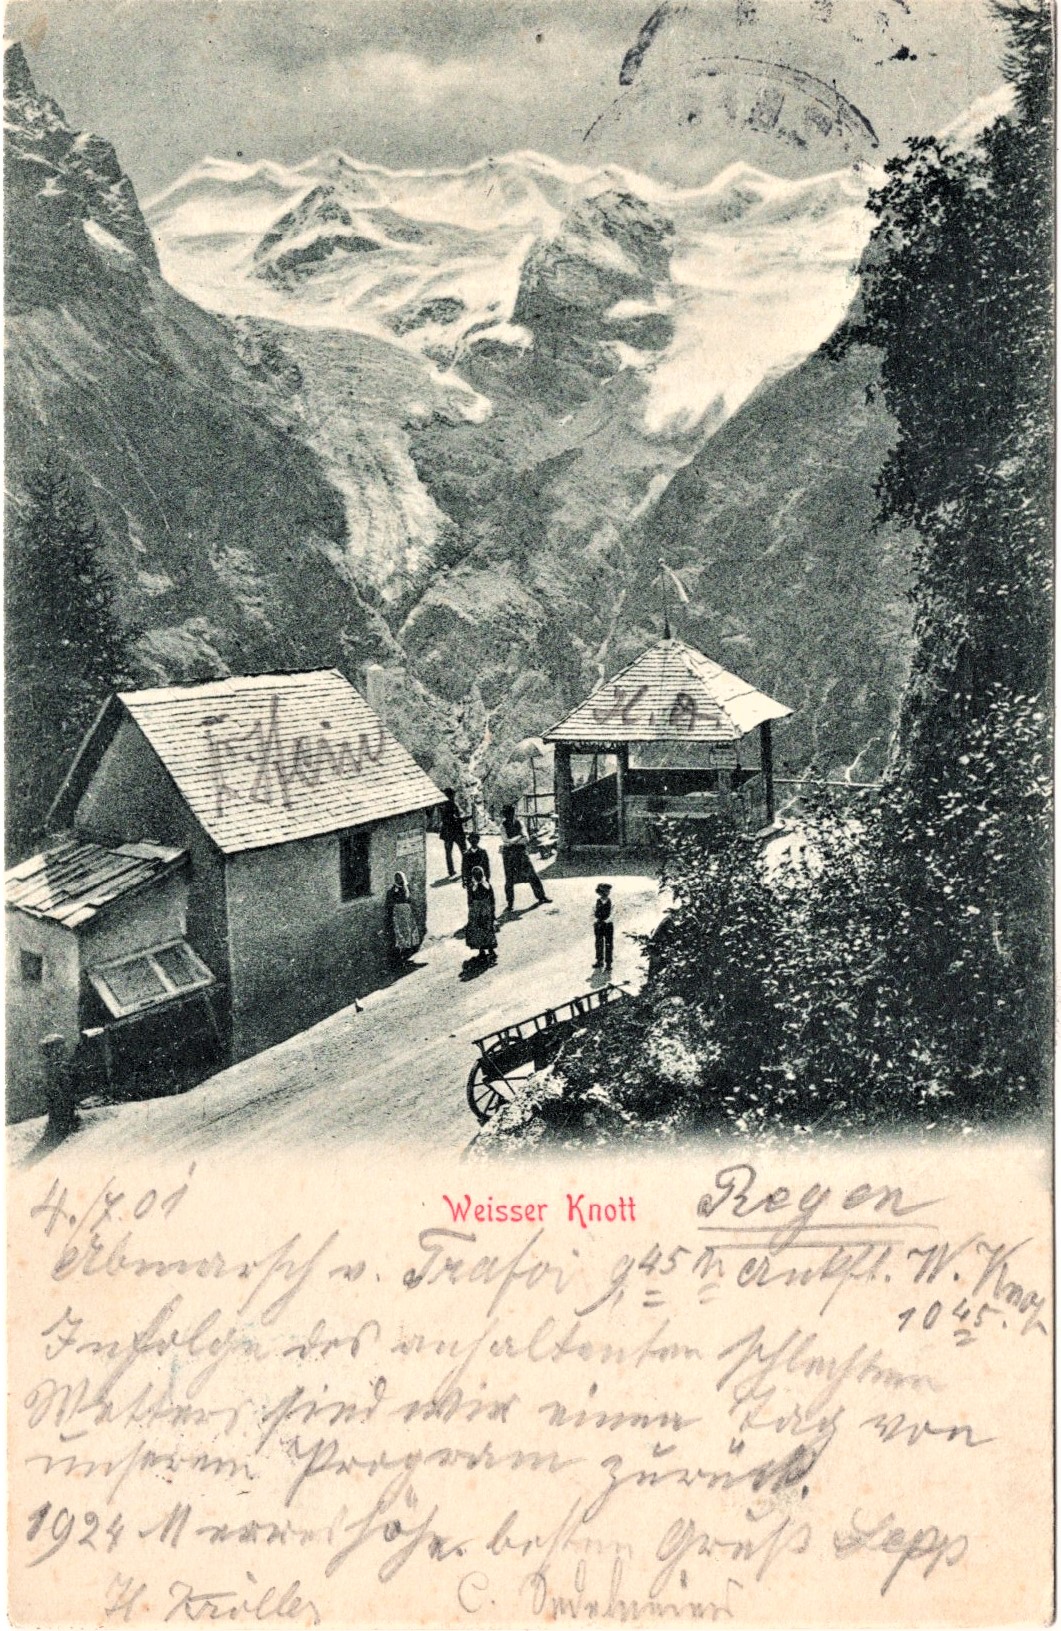 H. A.
4./7.01
Weisser Knott
Regen
Abmarsch v. Trafoi 9 45 Ankft. W. Knot
10 45.
Infolge des anhaltenten schlechten
Wetters sind wir einen Tag von
unserem Program zurück.
1924 M eereshöhe. besten Gruß Sepp
H. Kröller
C.